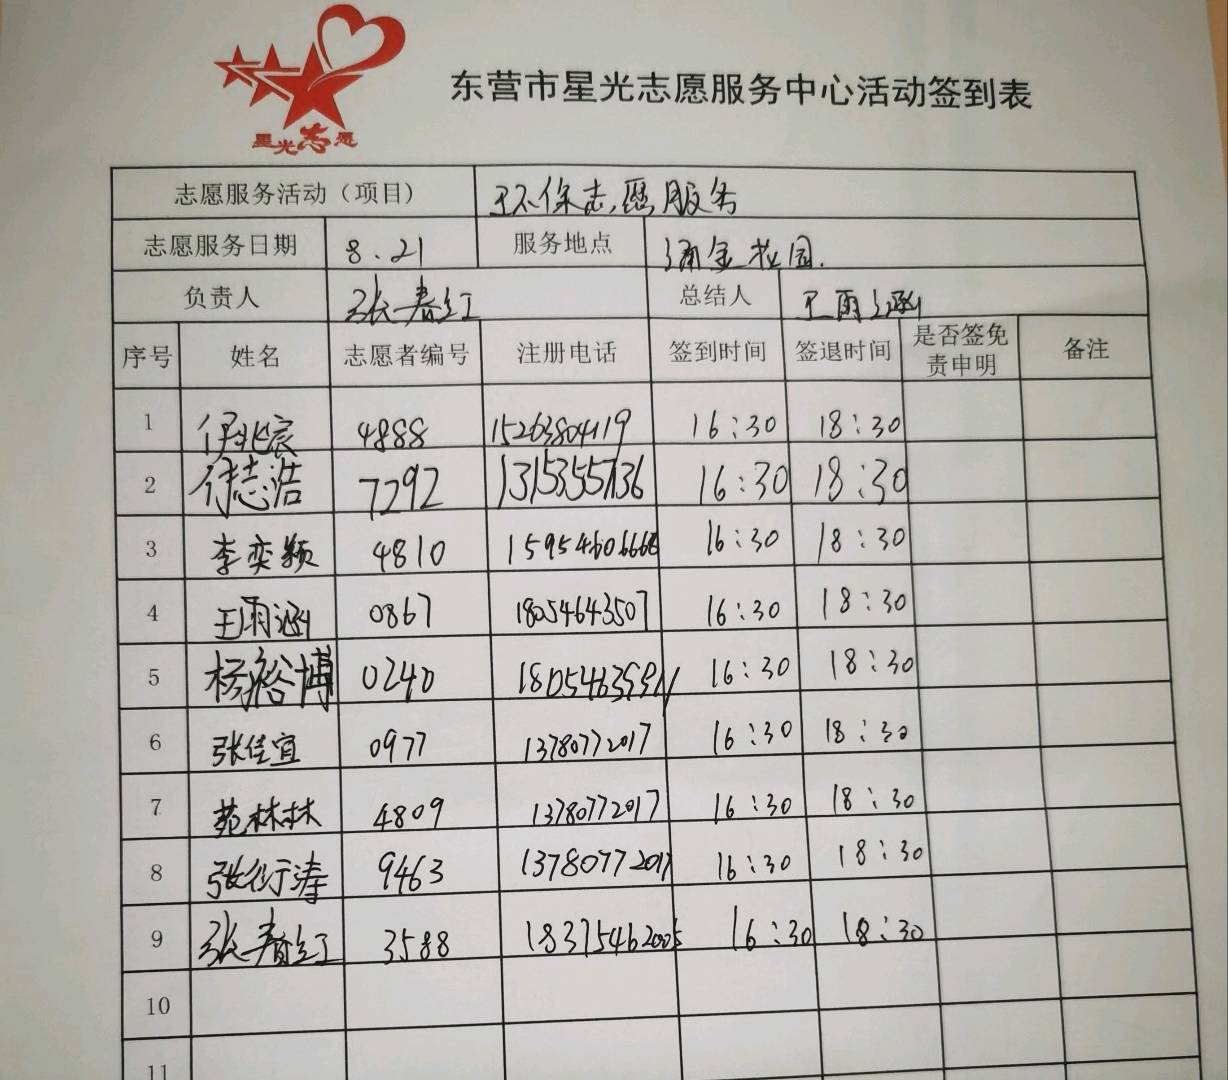 星光志愿
东营市星光志愿服务中心活动签到表
志愿服务活动（项目） 环保志愿服务
志愿服务日期 8.21 服务地点 涌金花园.
负责人 张春红 总结人 王雨涵
序号 姓名 志愿者编号 注册电话 签到时间 签退时间 是否签免责申明 备注
1 兆宸 4888 15263804119 16:30 18:30
2 徐志浩 7292 16:30 18:30
3 李奕颖 4810 15954606668 16:30 18:30
4 王雨涵 0867 18054643507 16:30 18:30
5 杨裕博 0240 16:30 18:30
6 张佳宜 0977 13780772017 16:30 18:30
7 苑林林 4809 13780772017 16:30 18:30
8 张衍涛 9463 13780772017 16:30 18:30
9 张春红 3588 18375462005 16:30 18:30
10
11